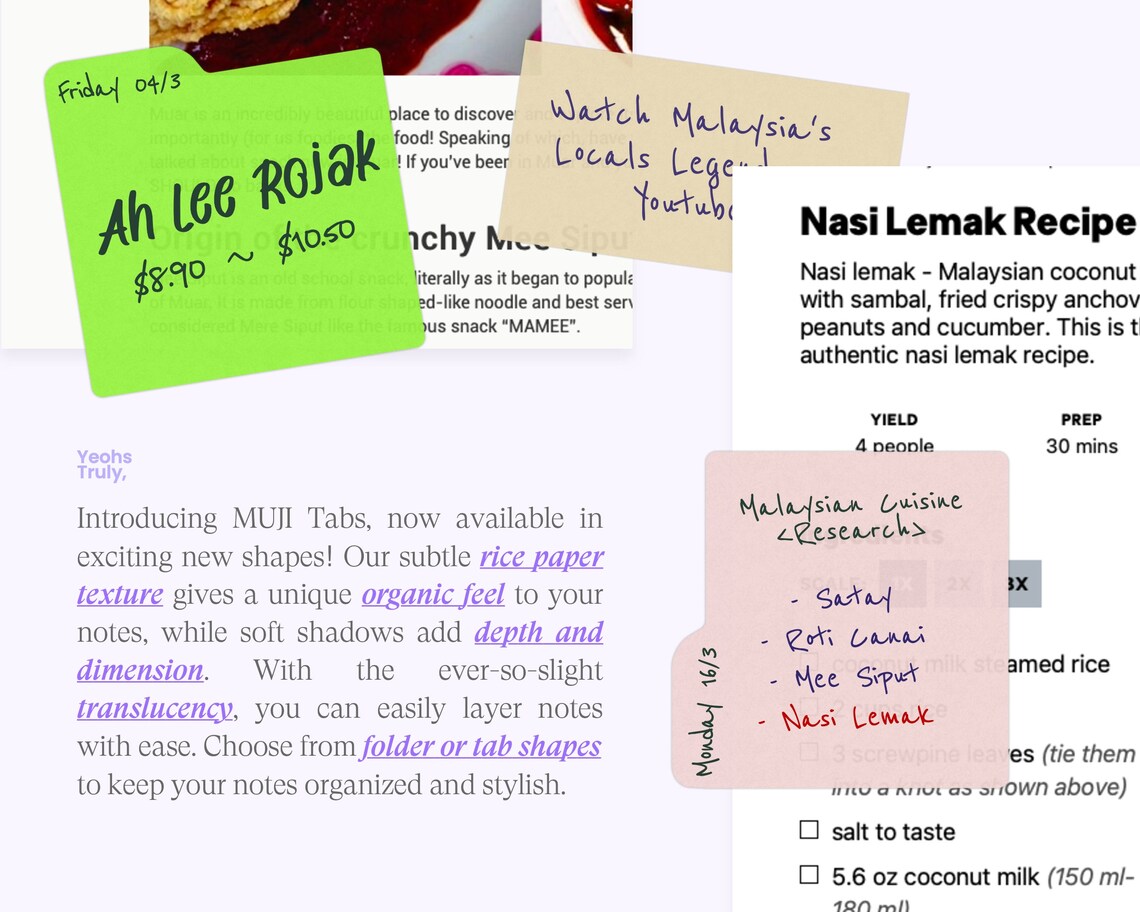 Friday 04/3
Ah Lee Rojak
$8.90 ~ $10.50
Muar is an incredibly beautiful place to discover and
importantly (for us foodies) the food! Speaking of which, have
talked about ! If you've been in
Origin of the crunchy Mee Siput
is an old school snack, literally as it began to popula
of Muar, it is made from flour shaped-like noodle and best serv
considered Mere Siput like the famous snack “MAMEE”.
Watch Malaysia's
Locals Legend
Youtube
Nasi Lemak Recipe
Nasi lemak - Malaysian coconut
with sambal, fried crispy anchov
peanuts and cucumber. This is th
authentic nasi lemak recipe.
YIELD
PREP
4 people
30 mins
Malaysian Cuisine
<Research>
- Satay
- Roti Canai
- Mee Siput
- Nasi Lemak
Monday 16/3
Ingredients
SCALE 1X 2X 3X
coconut milk steamed rice
2 cups rice
3 screwpine leaves (tie them
into a knot as shown above)
salt to taste
5.6 oz coconut milk (150 ml-
180 ml)
Yeohs
Truly,
Introducing MUJI Tabs, now available in
exciting new shapes! Our subtle rice paper
texture gives a unique organic feel to your
notes, while soft shadows add depth and
dimension. With the ever-so-slight
translucency, you can easily layer notes
with ease. Choose from folder or tab shapes
to keep your notes organized and stylish.